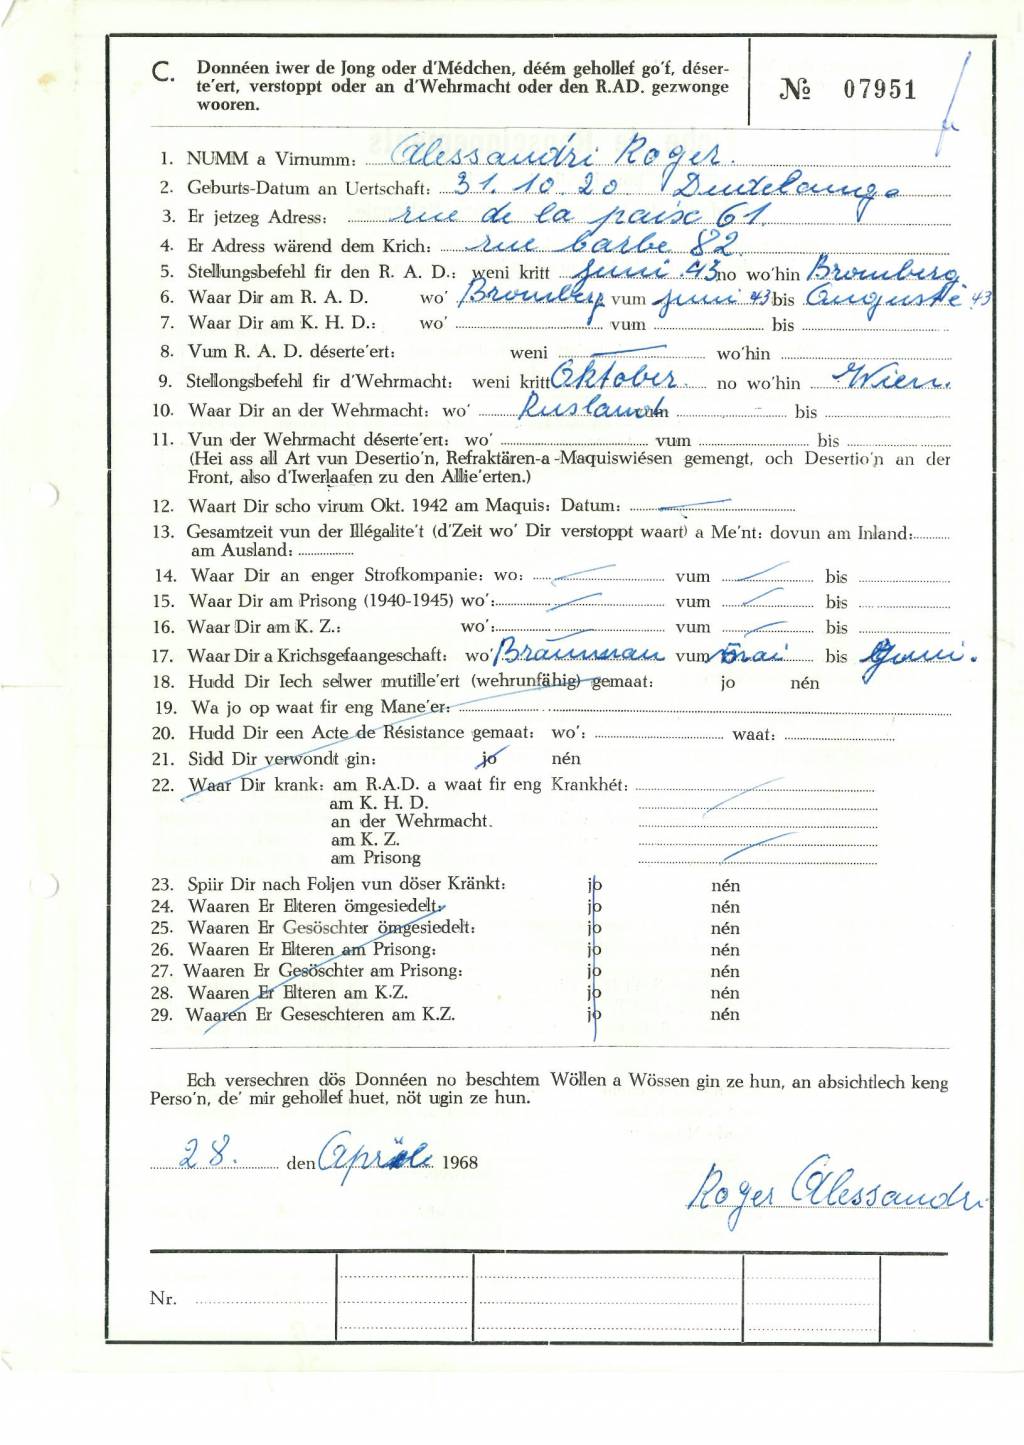 C. Donnéen iwer de Jong oder d'Médchen, déém gehollef go'f, déser-
te'ert, verstoppt oder an d'Wehrmacht oder den R.AD. gezwonge
wooren.
№ 07951
1. NUMM a Virnumm: Alessandri Roger.
2. Geburts-Datum an Uertschaft: 31.10.20 Dudelange
3. Er jetzeg Adress: rue de la paix 61.
4. Er Adress wärend dem Krich: rue barbe 82
5. Stellungsbefehl fir den R. A. D.: weni kritt Juni 43 no wo'hin Bromberg
6. Waar Dir am R. A. D. wo' Bromberg vum Juni 43 bis Auguste 43
7. Waar Dir am K. H. D.: wo' vum bis
8. Vum R. A. D. déserte'ert: weni wo'hin
9. Stellongsbefehl fir d'Wehrmacht: weni kritt Oktober no wo'hin Wien.
10. Waar Dir an der Wehrmacht: wo' Rusland vum bis
11. Vun der Wehrmacht déserte'ert: wo' vum bis
(Hei ass all Art vun Desertio'n, Refraktären-a-Maquiswiésen gemengt, och Desertio'n an der
Front, also d'Iwerlaafen zu den Allie'erten.)
12. Waart Dir scho virum Okt. 1942 am Maquis: Datum:
13. Gesamtzeit vun der Illégalite't (d'Zeit wo' Dir verstoppt waart) a Me'nt: dovun am Inland:
am Ausland:
14. Waar Dir an enger Strofkompanie: wo: vum bis
15. Waar Dir am Prisong (1940-1945) wo': vum bis
16. Waar Dir am K. Z.: wo': vum bis
17. Waar Dir a Krichsgefaangeschaft: wo' Braunau vum mai bis Juni.
18. Hudd Dir Iech selwer mutille'ert (wehrunfähig) gemaat: jo nén
19. Wa jo op waat fir eng Mane'er:
20. Hudd Dir een Acte de Résistance gemaat: wo': waat:
21. Sidd Dir verwondt gin: jo nén
22. Waar Dir krank: am R.A.D. a waat fir eng Krankhét:
am K. H. D.
an der Wehrmacht.
am K. Z.
am Prisong
23. Spiir Dir nach Foljen vun döser Kränkt: jo nén
24. Waaren Er Elteren ömgesiedelt: jo nén
25. Waaren Er Gesöschter ömgesiedelt: jo nén
26. Waaren Er Elteren am Prisong: jo nén
27. Waaren Er Gesöschter am Prisong: jo nén
28. Waaren Er Elteren am K.Z. jo nén
29. Waaren Er Geseschteren am K.Z. jo nén
Ech versechren dös Donnéen no beschtem Wöllen a Wössen gin ze hun, an absichtlech keng
Perso'n, de' mir gehollef huet, nöt ugin ze hun.
28. den 1968
Roger Alessandri
Nr.